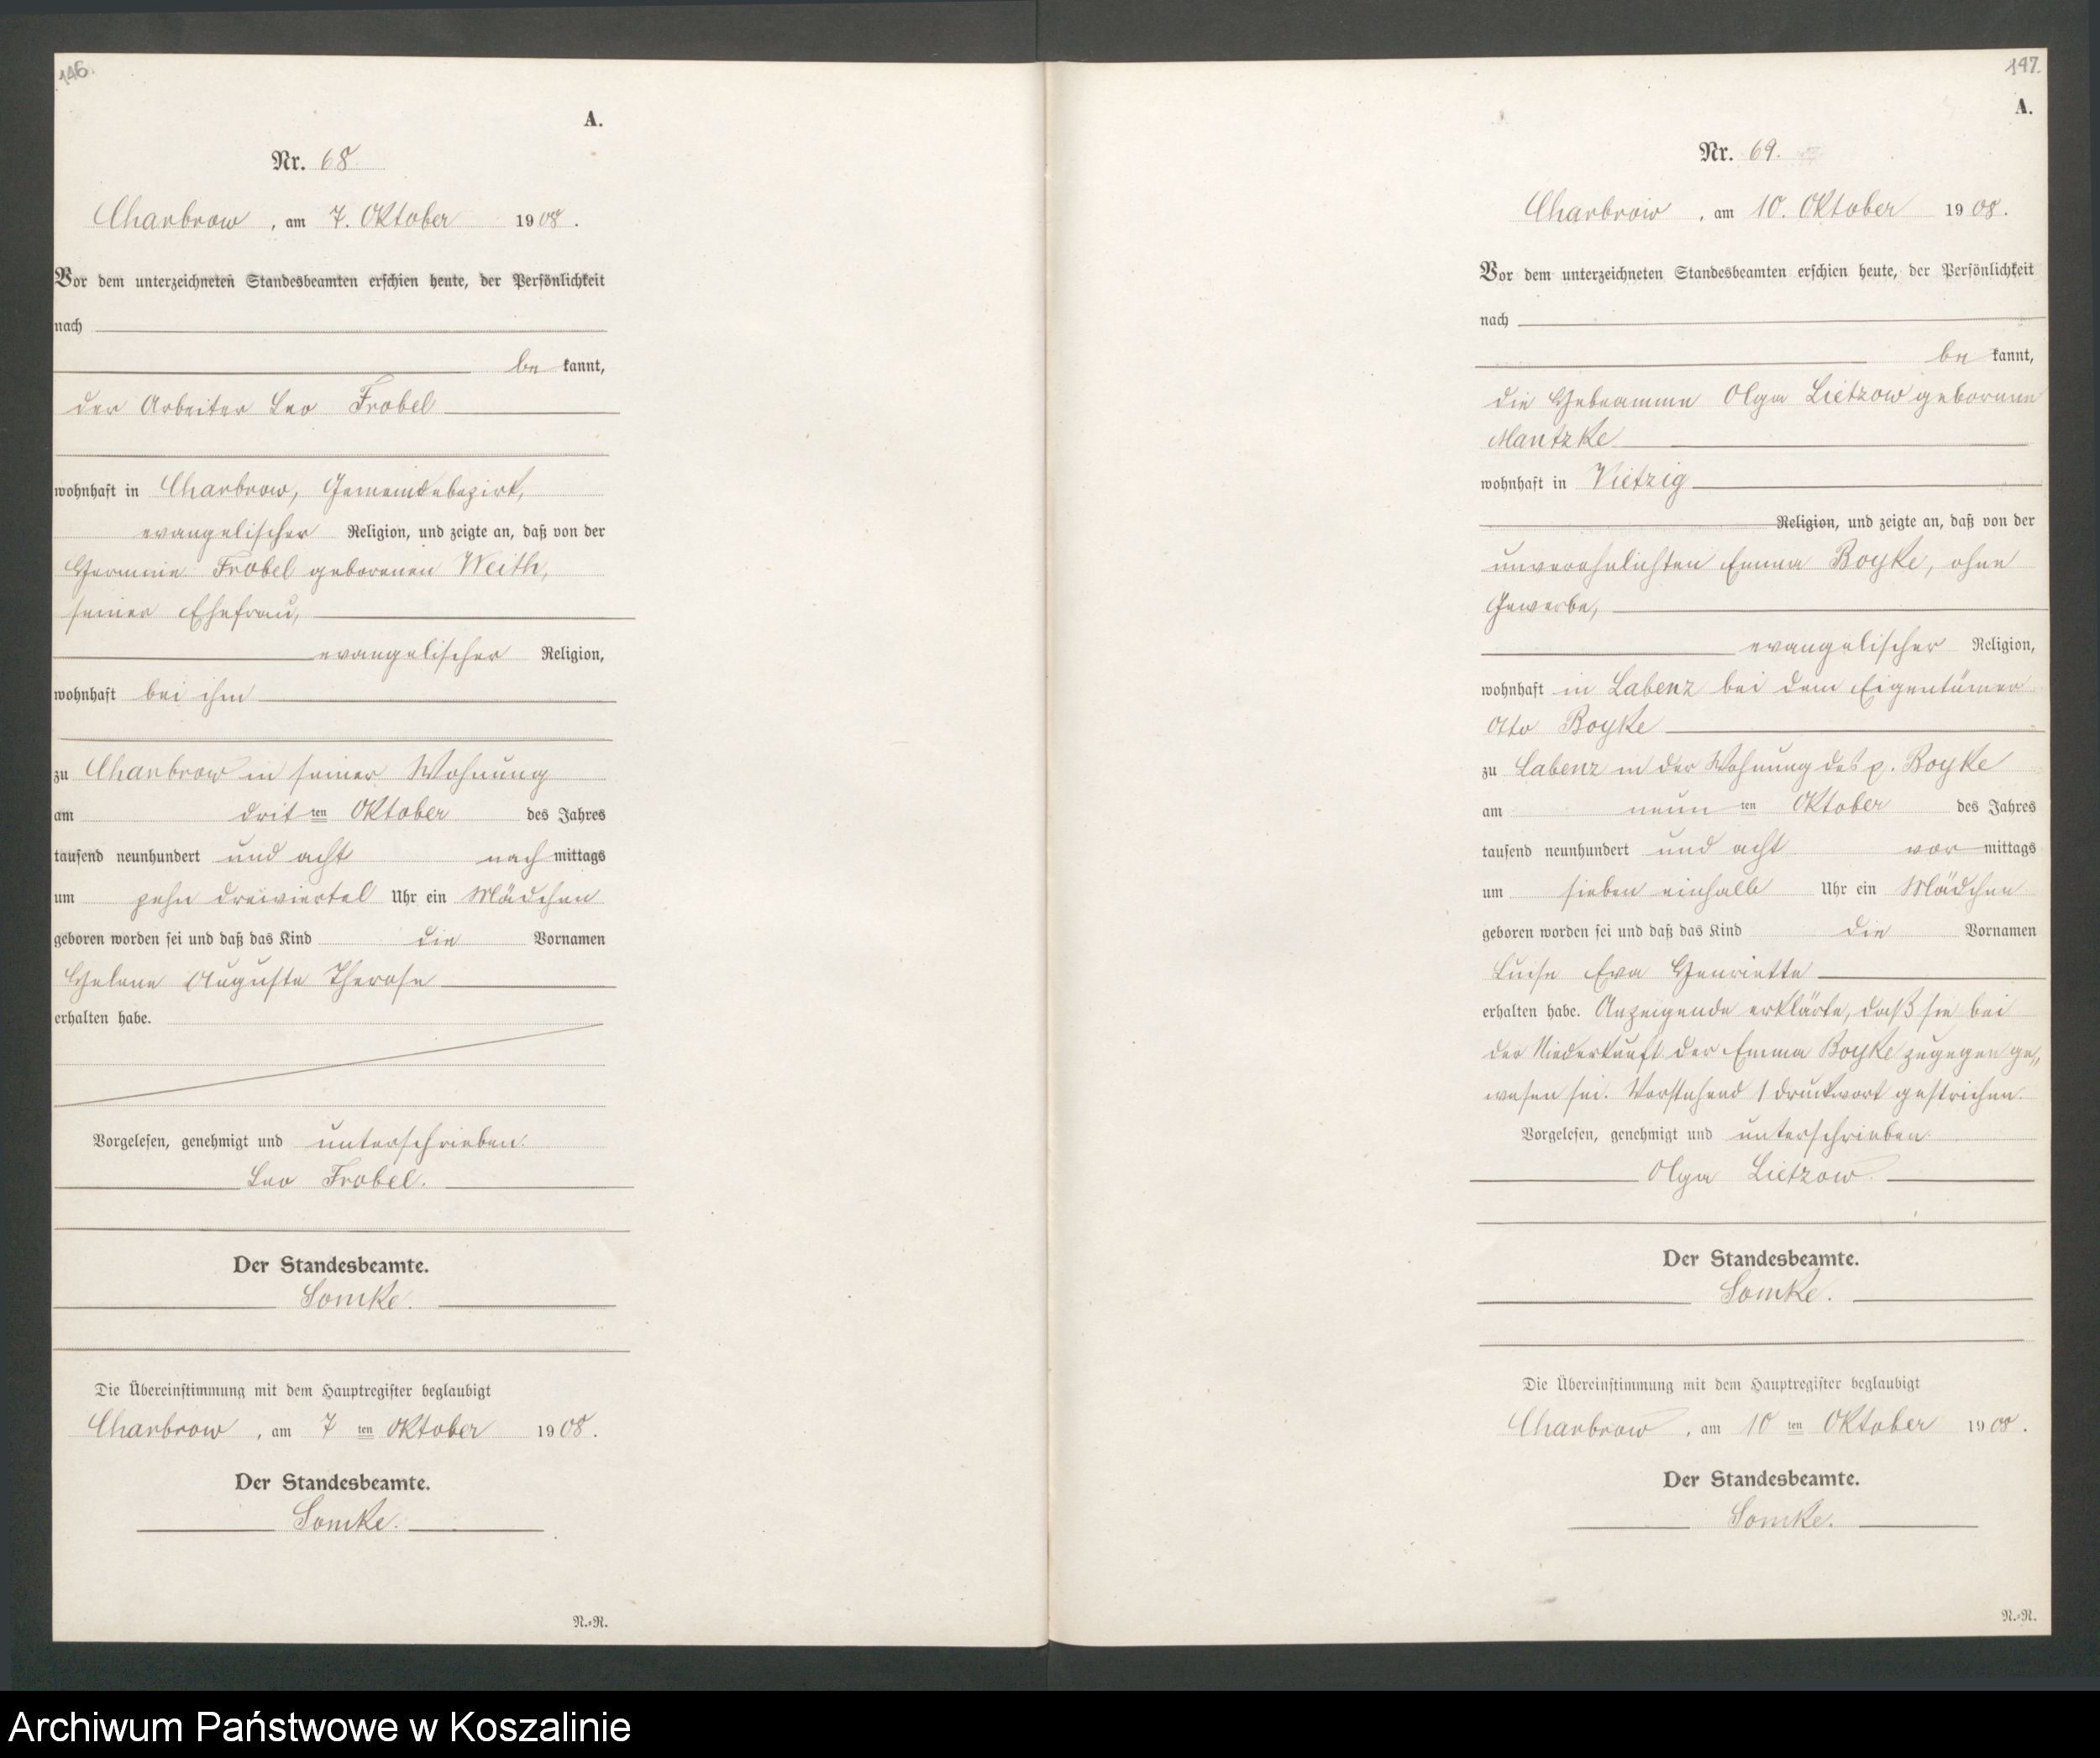 146.
A.
Nr. 68
Charbrow, am 7. Oktober 1908.
Vor dem unterzeichneten Standesbeamten erschien heute, der Persönlichkeit
nach
bekannt,
der Arbeiter Leo Frobel
wohnhaft in Charbrow, Gemeindebezirk,
evangelischer Religion, und zeigte an, daß von der
Frobel geborenen Weith,
seiner Ehefrau,
evangelischer Religion,
wohnhaft bei ihm
zu Charbrow in seiner Wohnung
am dritten Oktober des Jahres
tausend neunhundert und acht nachmittags
um zehn dreiviertel Uhr ein Mädchen
geboren worden sei und daß das Kind die Vornamen
Helene Auguste Therese
erhalten habe.
Vorgelesen, genehmigt und unterschrieben.
Leo Frobel.
Der Standesbeamte.
Somke.
Die Übereinstimmung mit dem Hauptregister beglaubigt
Charbrow, am 7ten Oktober 1908.
Der Standesbeamte.
Somke.
N.=R.
147.
A.
Nr. 69.
Charbrow, am 10. Oktober 1908.
Vor dem unterzeichneten Standesbeamten erschien heute, der Persönlichkeit
nach
bekannt,
die Hebeamme Olga Lietzow geborene
Mantzke
wohnhaft in Vietzig
Religion, und zeigte an, daß von der
unverehelichten Emma Boyke, ohne
Gewerbe,
evangelischer Religion,
wohnhaft in Labenz bei dem Eigentümer
Otto Boyke
zu Labenz in der Wohnung des p. Boyke
am neunten Oktober des Jahres
tausend neunhundert und acht vormittags
um sieben einhalb Uhr ein Mädchen
geboren worden sei und daß das Kind die Vornamen
Luise Eva Henriette
erhalten habe. Anzeigende erklärte, daß sie bei
der Niederkunft der Emma Boyke zugegen ge„
wesen sei. Vorstehend 1 Druckwort gestrichen.
Vorgelesen, genehmigt und unterschrieben.
Olga Lietzow.
Der Standesbeamte.
Somke.
Die Übereinstimmung mit dem Hauptregister beglaubigt
Charbrow, am 10ten Oktober 1908.
Der Standesbeamte.
Somke.
N.=R.
Archiwum Państwowe w Koszalinie